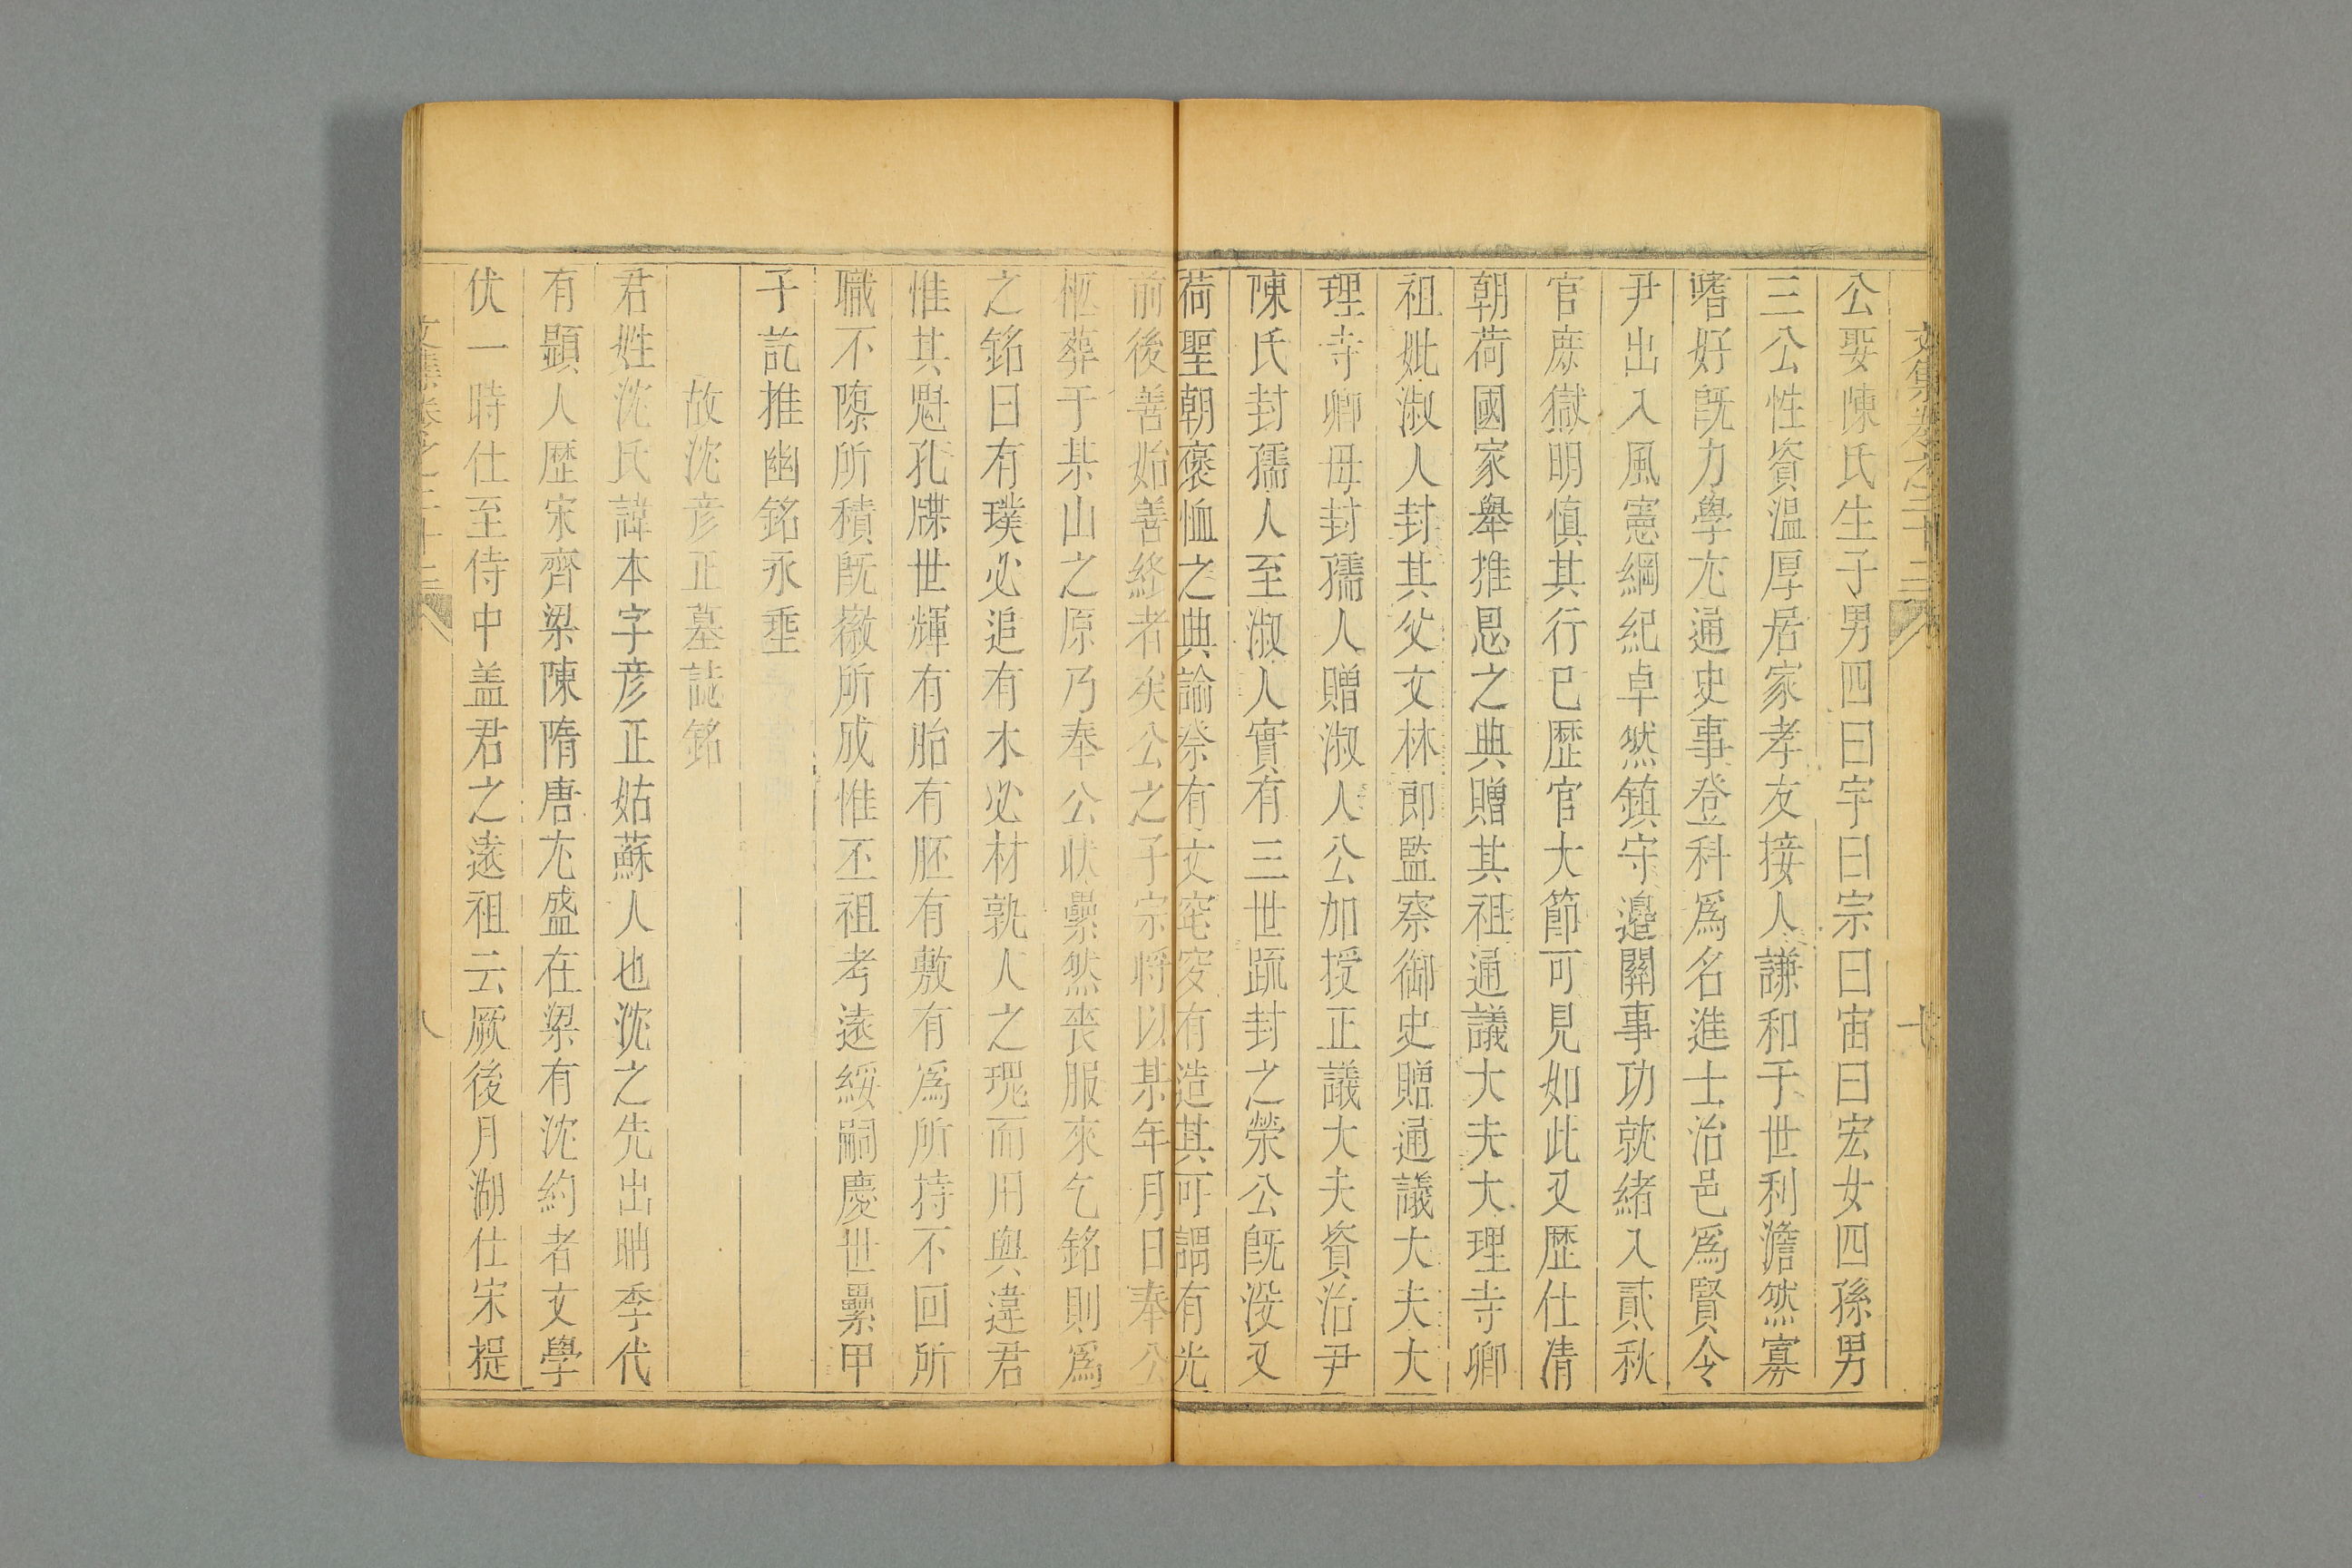 文集卷之二十三
公娶陳氏生子男四曰宇曰宗曰宙曰宏女四孫男
三公性資溫厚居家孝友接人謙和于世利澹然寡
嗜好旣力學尤通史事登科爲名進士治邑爲賢令
尹出入風憲綱紀卓然鎮守邊關事功就緒入貳秋
官庶獄明慎其行已歷官大節可見如此又歷仕清
朝荷國家舉推恩之典贈其祖通議大夫大理寺卿
祖妣淑人封其父文林郎監察御史贈通議大夫大
理寺卿母封孺人贈淑人公加授正議大夫資治尹
陳氏封孺人至淑人實有三世疏封之榮公旣没又
荷聖朝褒恤之典諭祭有文窀穸有造其可謂有光
前後善始善終者矣公之子宗將以某年月日奉公
柩葬于某山之原乃奉公狀纍然喪服來乞銘則爲
之銘曰有璞必追有木必材孰人之瑰而用與違君
惟其魁孔牒世輝有胎有胚有敷有爲所持不回所
職不隳所積旣徽所成惟丕祖考遠綏嗣慶世纍甲
子訖推幽銘永垂
故沈彦正墓誌銘
君姓沈氏諱本字彦正姑蘇人也沈之先出聃季代
有顯人歷宋齊梁陳隋唐尤盛在梁有沈約者文學
伏一時仕至侍中盖君之遠祖云厥後月湖仕宋提
文集卷之二十三